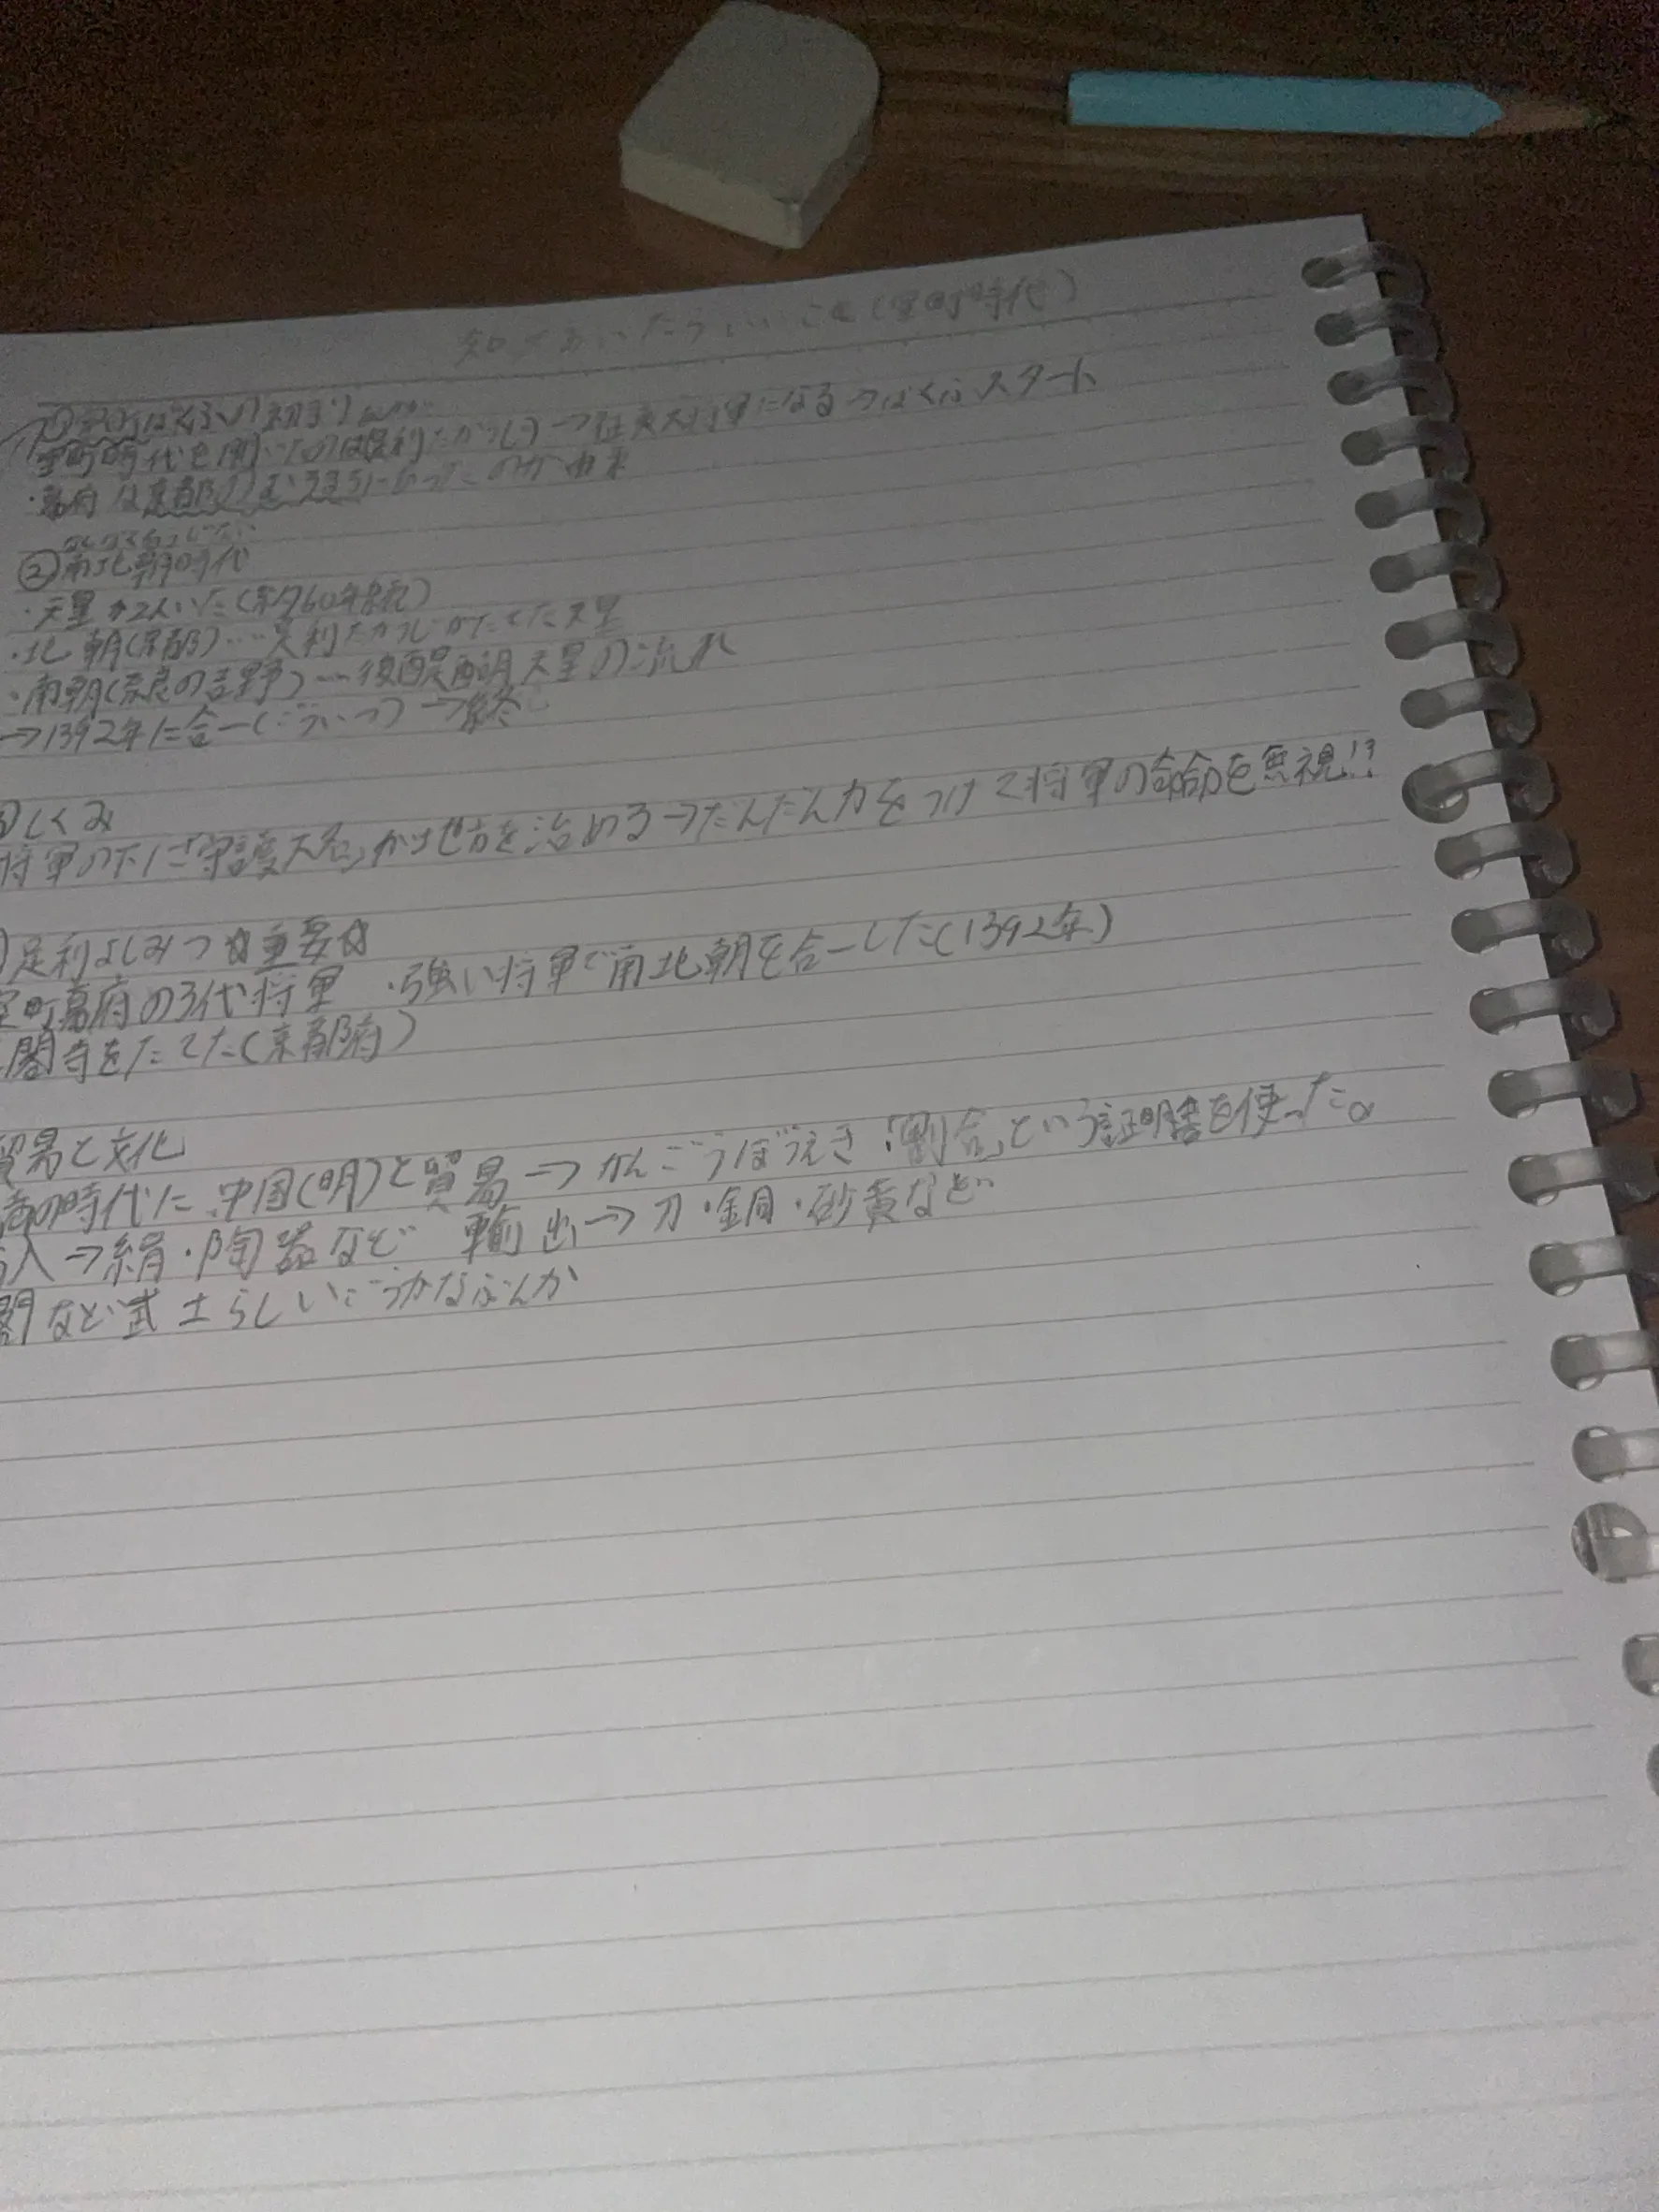 知っておいたらいいこと(室町時代)
①室町ばくふの初まり
室町時代を開いたのは足利たかうじ→征夷大将軍になる→ばくふスタート
・幕府は京都のむろまちにあったのが由来
なんぼくちょうじだい
②南北朝時代
・天皇が2人いた(約60年間)
・北朝(京都)…足利たかうじがたてた天皇
・南朝(奈良の吉野)…後醍醐天皇の流れ
→1392年に合一(ごういつ)→終
しくみ
将軍の下に「守護大名」が地方を治める→だんだん力をつけて将軍の命令を無視!?
足利よしみつ☆重要☆
室町幕府の3代将軍 ・強い将軍で南北朝を合一した(1392年)
閣寺をたてた(京都府)
貿易と文化
の時代に中国(明)と貿易→かんごうぼうえき「割合」という証明書を使った。
入→絹・陶器など 輸出→刀・銅・砂黄など
閣など武士らしいごうかなぶんか